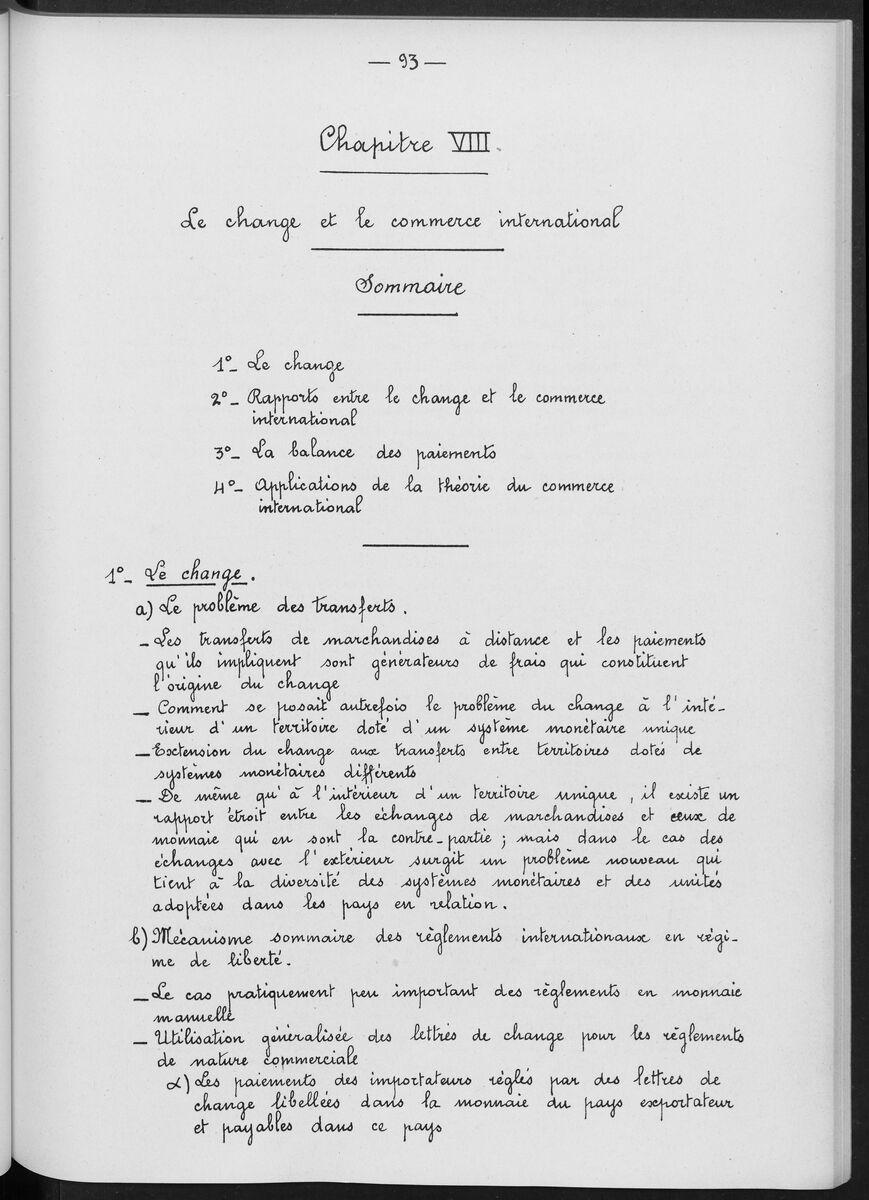 — 93 —
Chapitre VIII.
Le change et le commerce international
Sommaire
1°_ Le change
2°_ Rapports entre le change et le commerce
international
3°_ La balance des paiements
4°_ Applications de la théorie du commerce
international
1°_ Le change.
a) Le problème des transferts.
_ Les transferts de marchandises à distance et les paiements
qu'ils impliquent sont générateurs de frais qui constituent
l'origine du change
_ Comment se posait autrefois le problème du change à l'inté-
rieur d'un territoire doté d'un système monétaire unique
_ Extension du change aux transferts entre territoires dotés de
systèmes monétaires différents
_ De même qu'à l'intérieur d'un territoire unique, il existe un
rapport étroit entre les échanges de marchandises et ceux de
monnaie qui en sont la contre-partie ; mais dans le cas des
échanges avec l'extérieur surgit un problème nouveau qui
tient à la diversité des systèmes monétaires et des unités
adoptées dans les pays en relation.
b) Mécanisme sommaire des règlements internationaux en régi-
me de liberté.
_ Le cas pratiquement peu important des règlements en monnaie
manuelle
_ Utilisation généralisée des lettres de change pour les règlements
de nature commerciale
α) Les paiements des importateurs réglés par des lettres de
change libellées dans la monnaie du pays exportateur
et payables dans ce pays